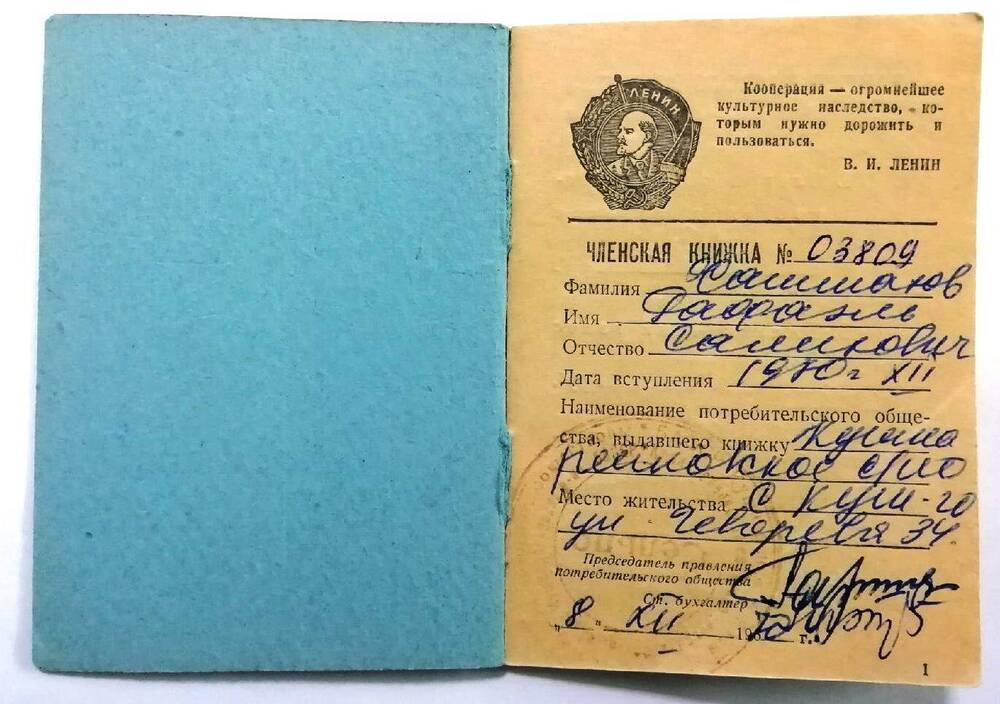 ЛЕНИН
Кооперация — огромнейшее
культурное наследство, ко-
торым нужно дорожить и
пользоваться.
В. И. ЛЕНИН
ЧЛЕНСКАЯ КНИЖКА № 03809
Фамилия
Имя Рафаэль
Отчество Салихович
Дата вступления 1970 г XII
Наименование потребительского обще-
ства, выдавшего книжку
Место жительства с
ул 34
Председатель правления
потребительского общества
Ст. бухгалтер
„8" XII 196 70 г.
1